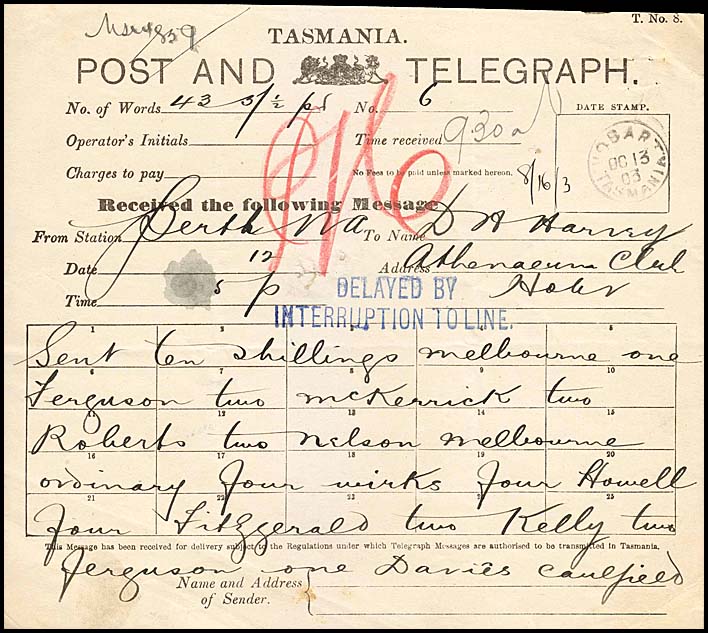 T. No. 8.
TASMANIA.
POST AND TELEGRAPH.
No. of Words 43 3/½ pd No. 6
DATE STAMP.
Operator's Initials Time received 930 a
Charges to pay No Fees to be paid unless marked hereon.
8/16/3
HOBART
OC 13
03
TASMANIA
Received the following Message
From Station Perth WA To Name D H Harvey
Date 12 Address Athenaeum Club
Time 5 p Hobt
DELAYED BY
INTERRUPTION TO LINE.
1 2 3 4 5
Sent ten shillings melbourne one
6 7 8 9 10
Ferguson two McKerrick two
11 12 13 14 15
Roberts two Nelson melbourne
16 17 18 19 20
ordinary four wirks four Howell
21 22 23 24 25
four FitzGerald two Kelly two
This Message has been received for delivery subject to the Regulations under which Telegraph Messages are authorised to be transmitted in Tasmania.
Ferguson one Davies caulfield
Name and Address
of Sender.